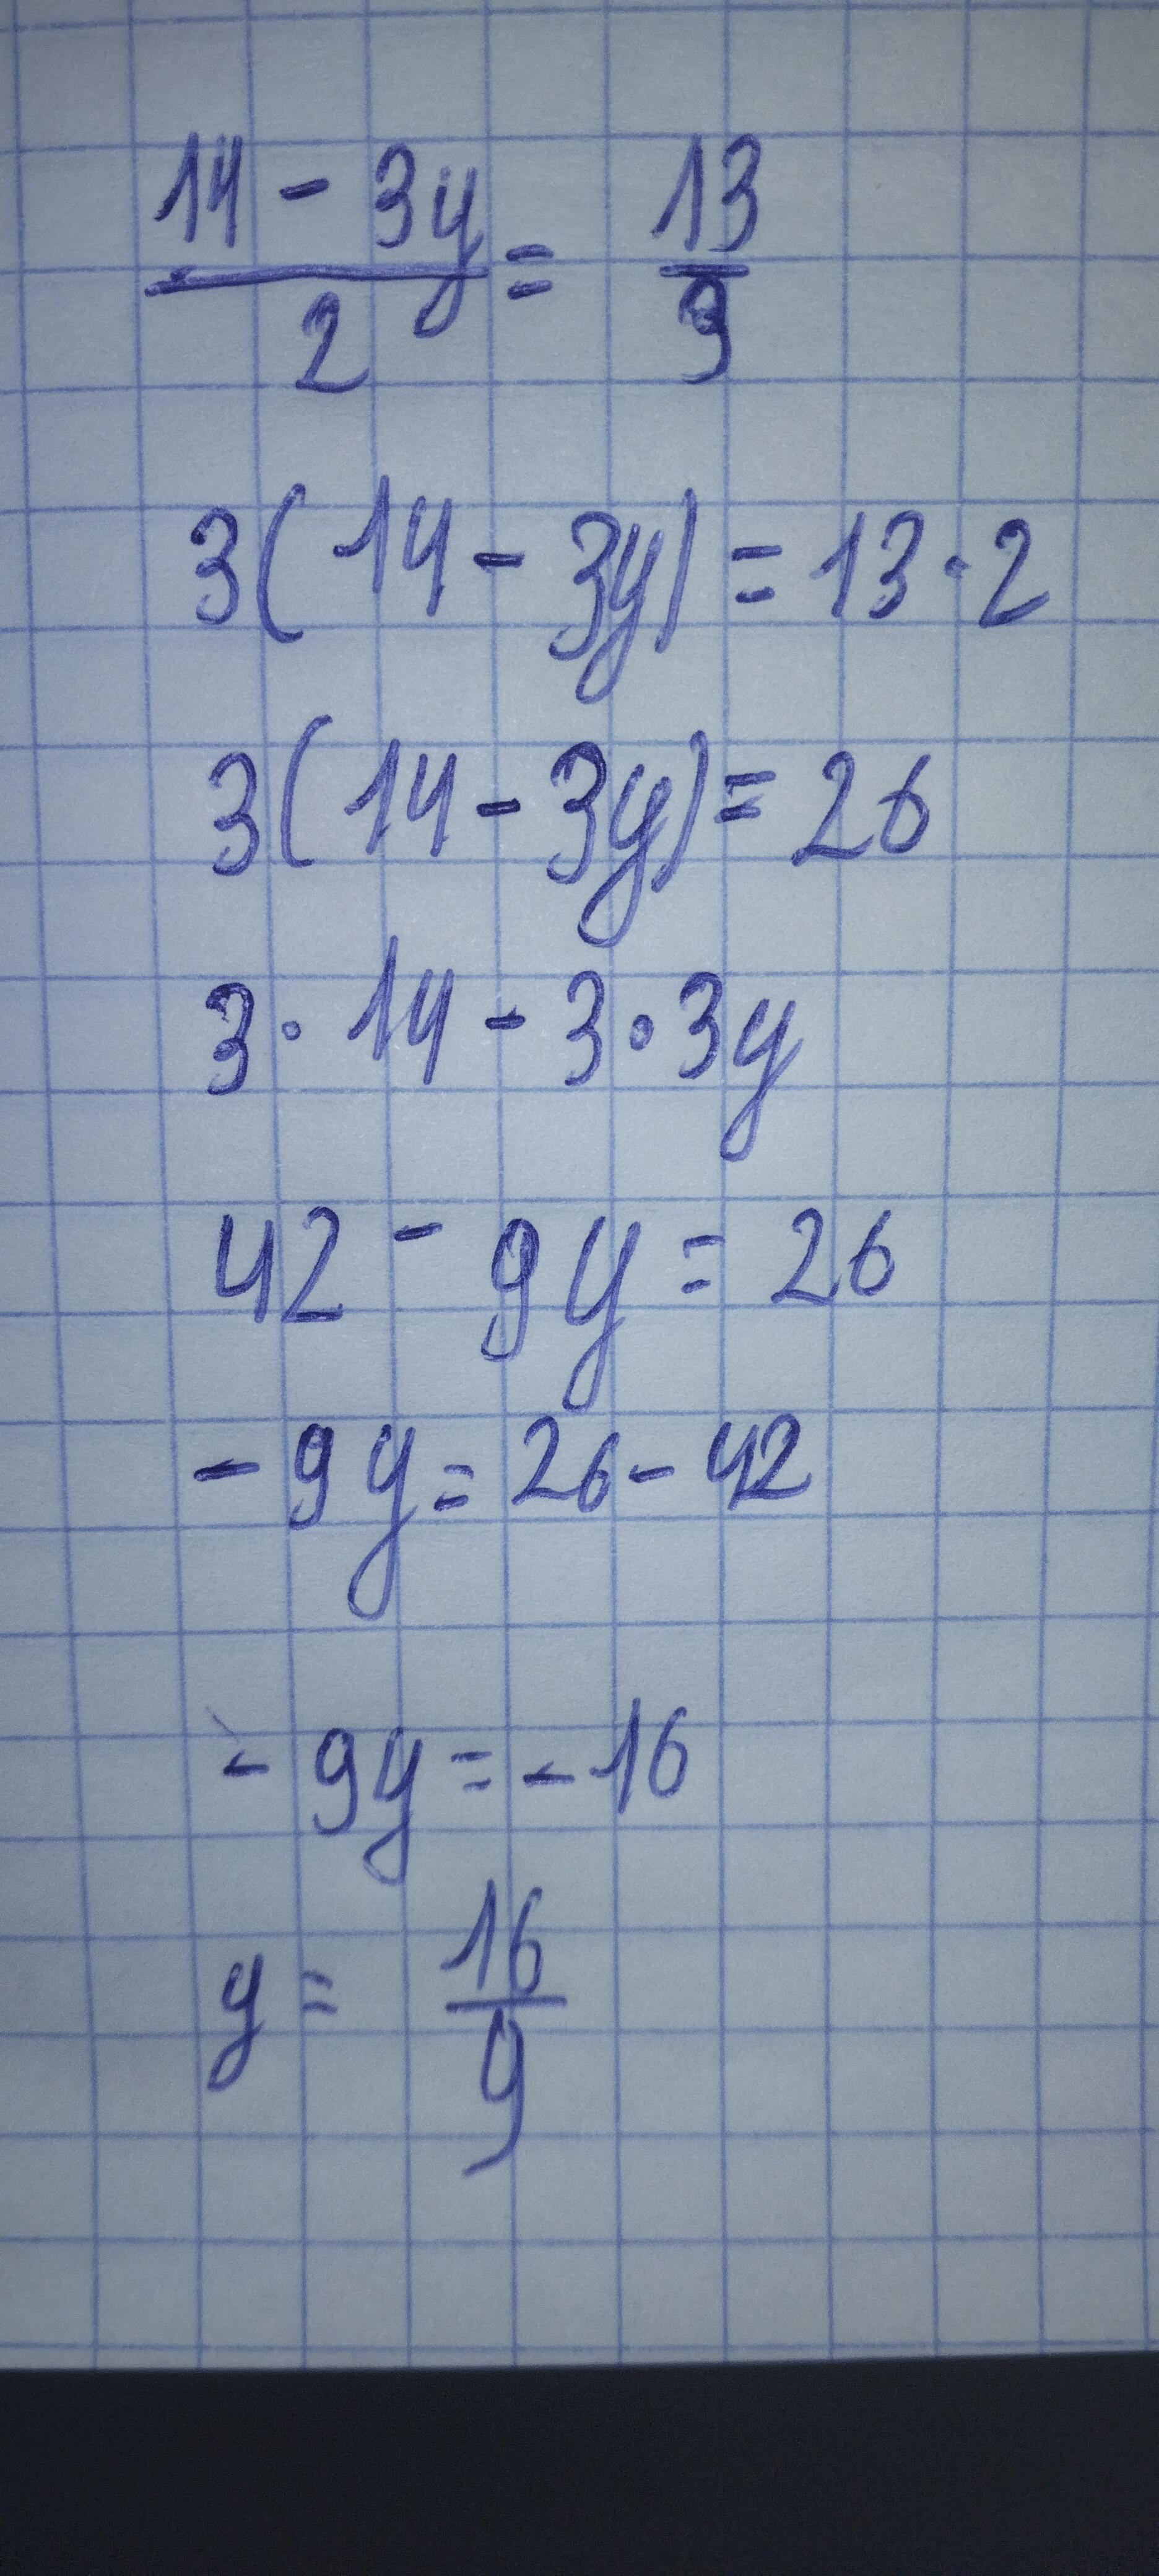 (14 - 3y)/2 = 13/3
3(14 - 3y) = 13 · 2
3(14 - 3y) = 26
3 · 14 - 3 · 3y
42 - 9y = 26
- 9y = 26 - 42
- 9y = - 16
y = 16/9